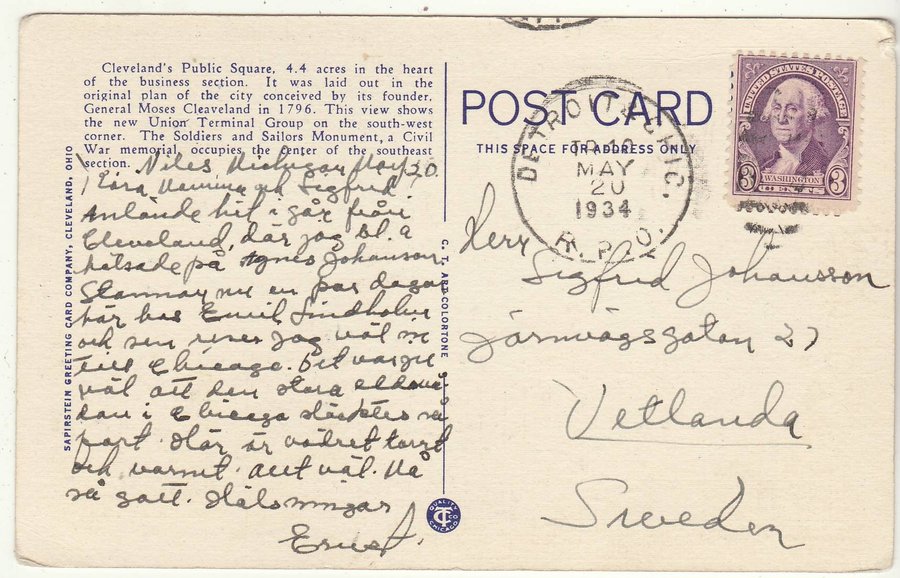 Cleveland's Public Square, 4.4 acres in the heart
of the business section. It was laid out in the
original plan of the city conceived by its founder,
General Moses Cleaveland in 1796. This view shows
the new Union Terminal Group on the south-west
corner. The Soldiers and Sailors Monument, a Civil
War memorial, occupies the center of the southeast
section.
Niles Michigan May 20.
Kära Mamma och Sigfrid
Anlände hit i går från
Cleveland, där jag bl. a
hälsade på Agnes Johanson
Stannar nu en par dagar
här hos Emil Lindholm
och sen reser jag väl
till Chicago. Det var ju
väl att den stora
i Chicago släcktes så
fort. Här är vädret torrt
och varmt. Allt väl. Må
så gott. Hälsningar
Ernst.
SAPIRSTEIN GREETING CARD COMPANY, CLEVELAND, OHIO
C. T. ART-COLORTONE
QUALITY
CHICAGO
POST CARD
THIS SPACE FOR ADDRESS ONLY
DETROIT & CHIC.
MAY
20
1934
R.P.O.
UNITED STATES POSTAGE
3 WASHINGTON 3
Herr
Sigfrid Johansson
Järnvägsgatan 27
Vetlanda
Sweden